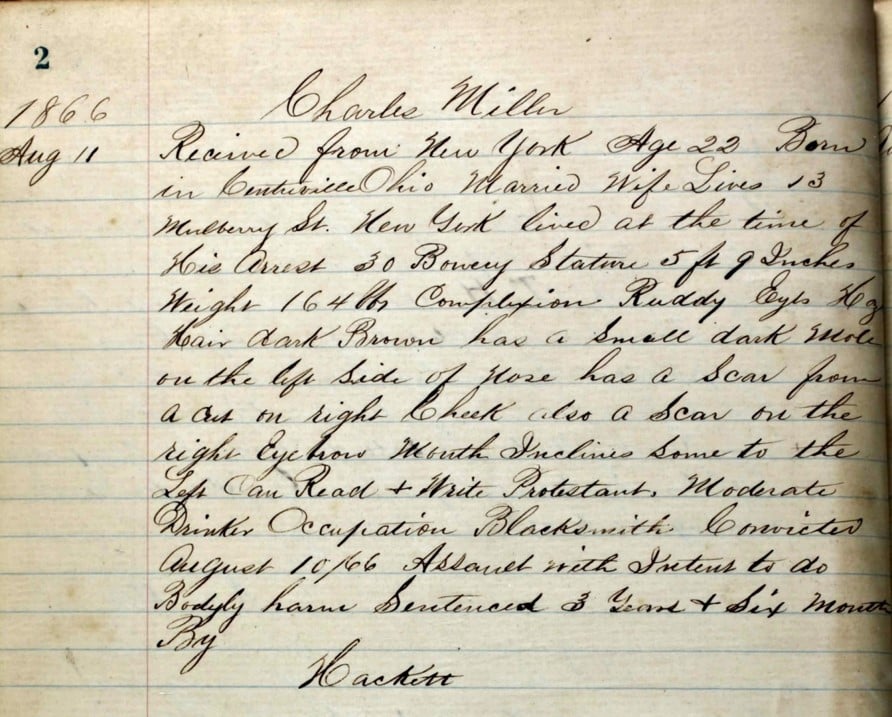 2
1866 Charles Miller
Aug 11 Received from New York Age 22 Born
in Centreville Ohio Married Wife Lives 13
Mulberry St. New York lived at the time of
His Arrest 30 Bowery Stature 5 ft 9 Inches
Weight 164 lbs Complexion Ruddy Eyes Haz
Hair dark Brown has a Small dark Mole
on the left Side of Nose has a Scar from
a cut on right Cheek also a Scar on the
right Eyebrow Mouth Inclines Some to the
Left Can Read + Write Protestant. Moderate
Drinker Occupation Blacksmith Convicted
August 10/66 Assault with Intent to do
Bodyly harm Sentenced 3 Years + Six Month
By
Hackett